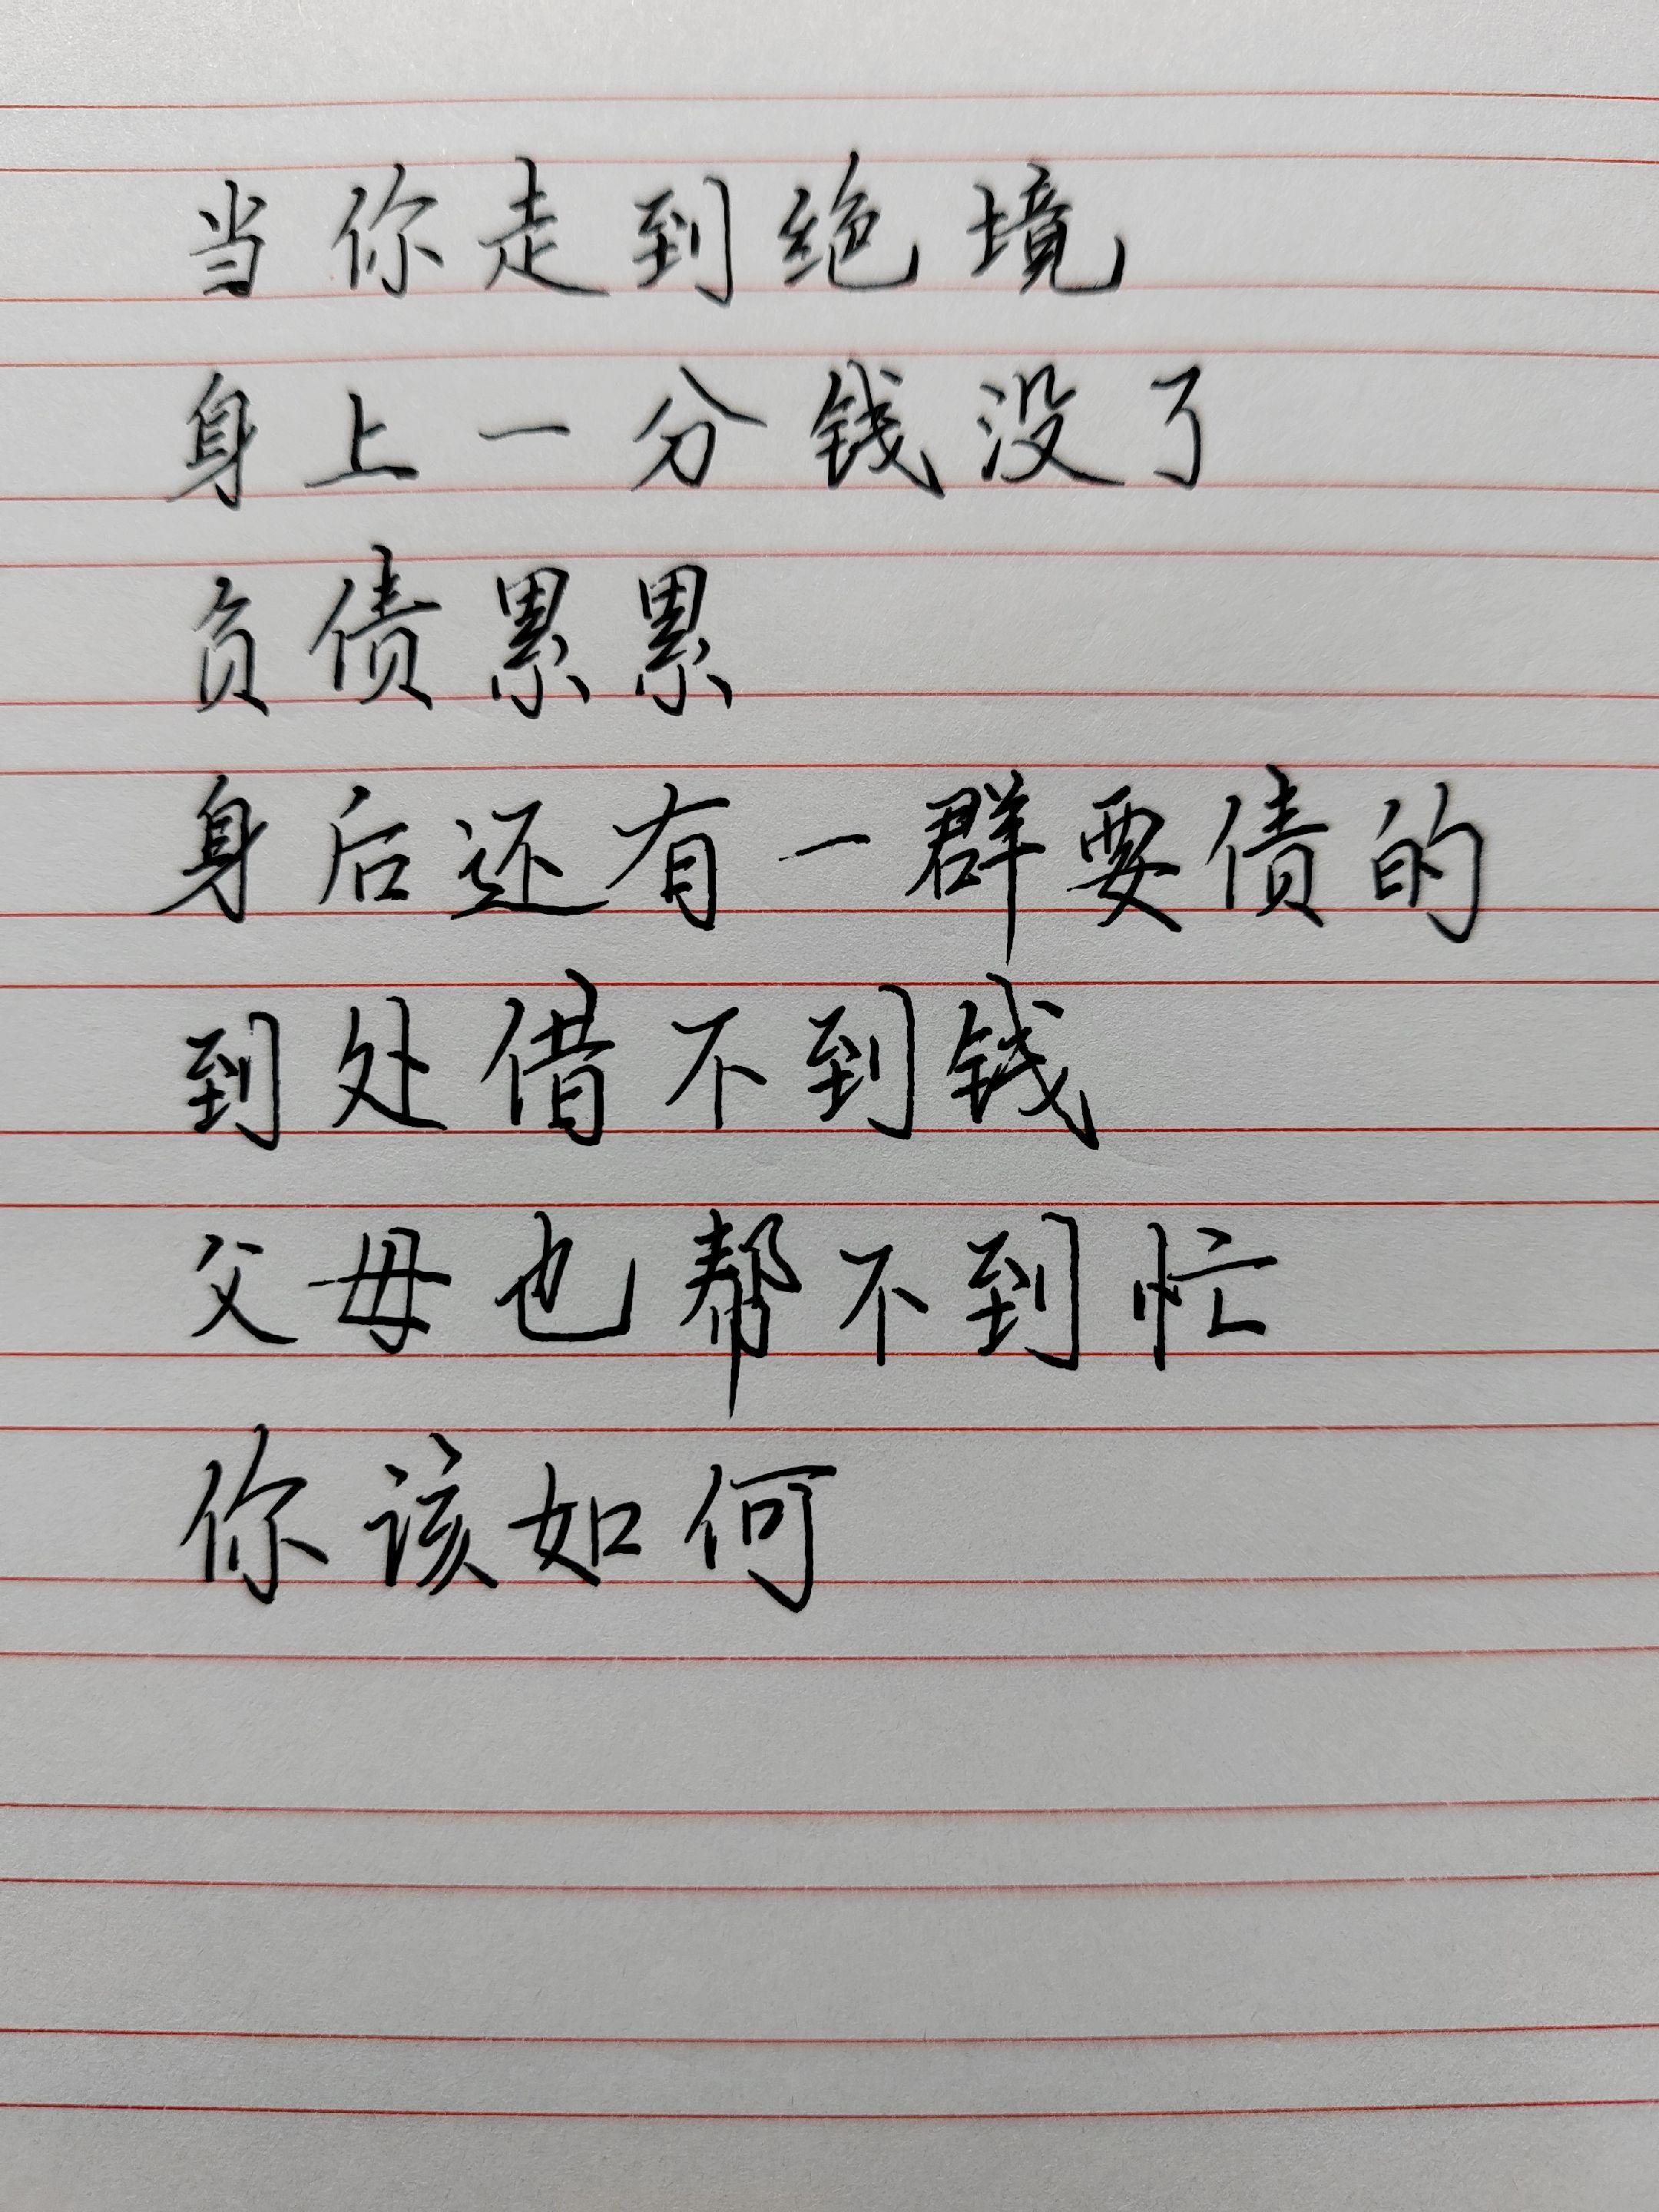 当你走到绝境
身上一分钱没了
负债累累
身后还有一群要债的
到处借不到钱
父母也帮不到忙
你该如何